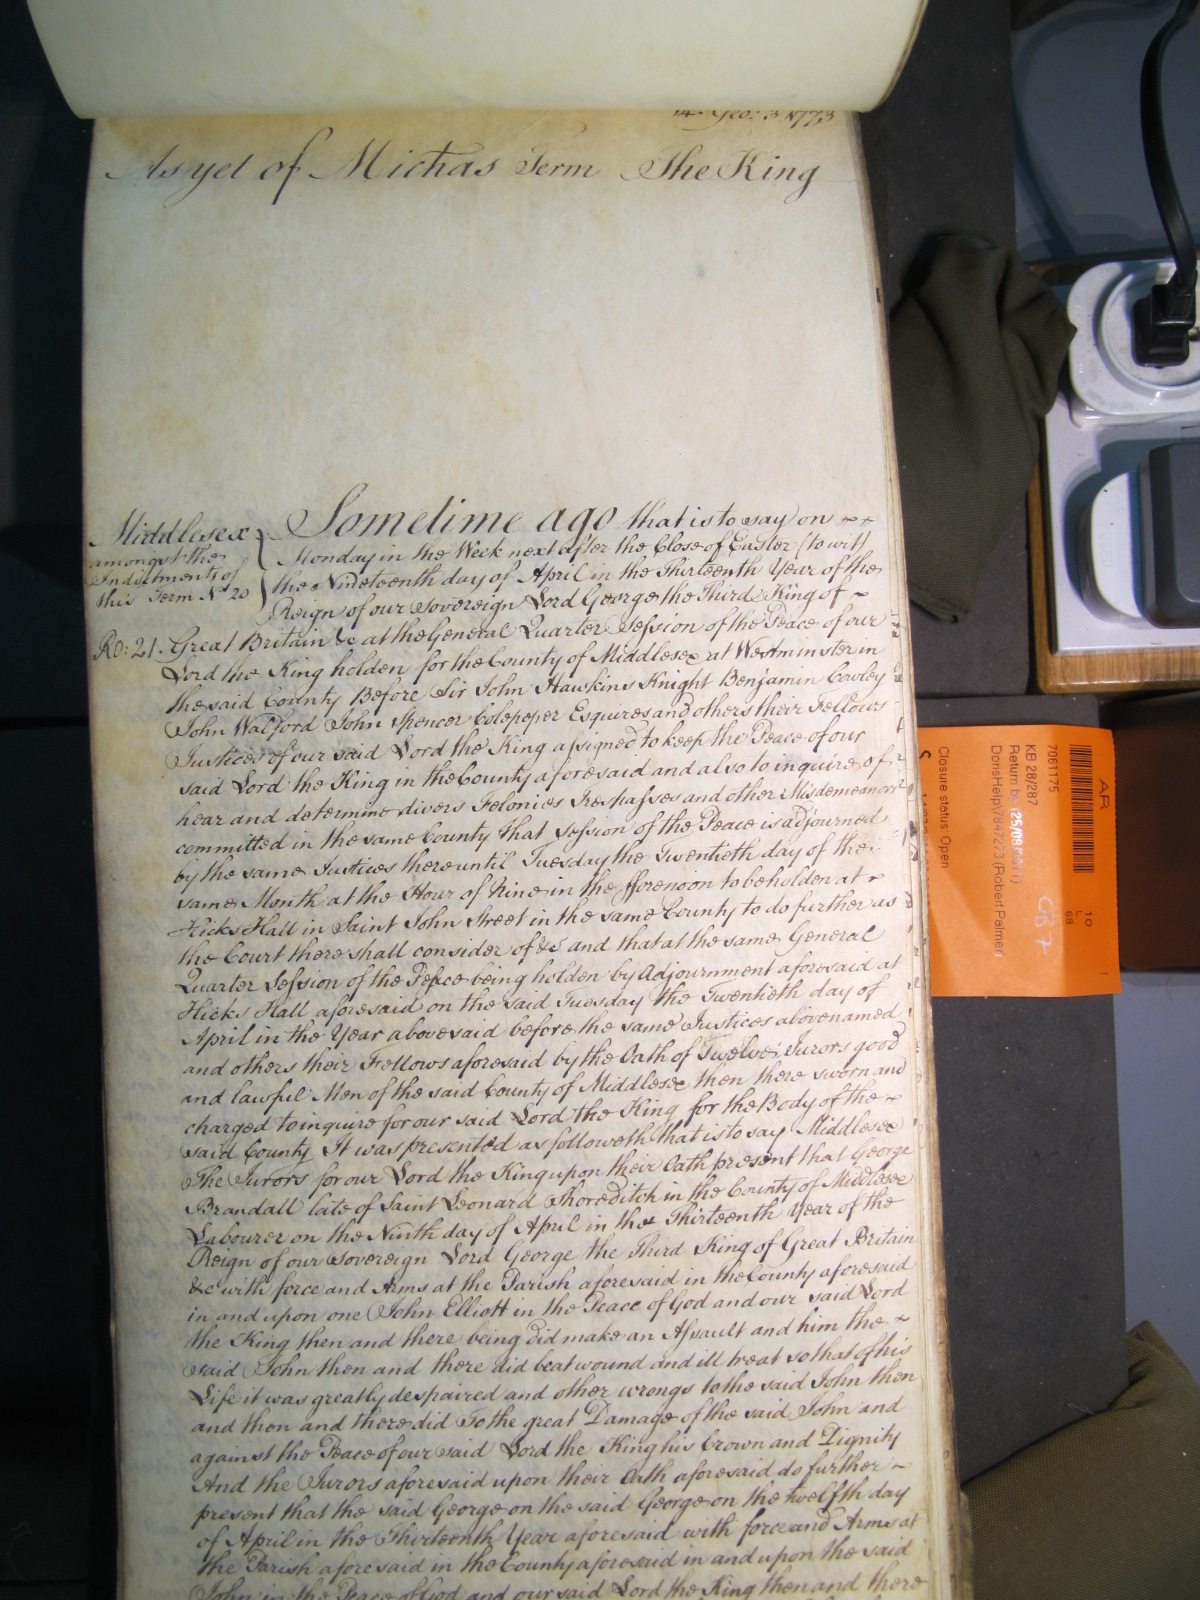 14. Geo: 3 1773
As yet of Michas Term The King
Middlesex
amongst the
Indictments of
this Term No 20
Ro: 21.
Sometime ago that is to say on
Monday in the Week next after the Close of Easter (to wit)
the Nineteenth day of April in the Thirteenth Year of the
Reign of our Sovereign Lord George the Third King of
Great Britain &c at the General Quarter Session of the Peace of our
Lord the King holden for the County of Middlesex at Westminster in
the said County Before Sir John Hawkins Knight Benjamin Cowley
John Walford John Spencer Colepeper Esquires and others their Fellows
Justices of our said Lord the King assigned to keep the Peace of our
said Lord the King in the County aforesaid and also to inquire of
hear and determine divers Felonies Trespasses and other Misdemeanors
committed in the same County that Session of the Peace is adjourned
by the same Justices thereuntil Tuesday the Twentieth day of the
same Month at the Hour of Nine in the fforenoon to be holden at
Hicks Hall in Saint John Street in the same County to do further as
the Court there shall consider of &c and that at the same General
Quarter Session of the Peace being holden by Adjournment aforesaid at
Hicks Hall aforesaid on the said Tuesday the Twentieth day of
April in the Year abovesaid before the same Justices abovenamed
and others their Fellows aforesaid by the Oath of Twelve Jurors good
and lawful Men of the said County of Middlesex then there sworn and
charged to inquire for our said Lord the King for the Body of the
said County It was presented as followeth that is to say Middlesex
The Jurors for our Lord the King upon their Oath present that George
Brandall late of Saint Leonard Shoreditch in the County of Middlesex
Labourer on the Ninth day of April in the Thirteenth Year of the
Reign of our Sovereign Lord George the Third King of Great Britain
&c with force and Arms at the Parish aforesaid in the County aforesaid
in and upon one John Elliott in the Peace of God and our said Lord
the King then and there being did make an Assault and him the
said John then and there did beat wound and ill treat so that of his
Life it was greatly despaired and other wrongs to the said John then
and then and there did To the great Damage of the said John and
against the Peace of our said Lord the King his Crown and Dignity
And the Jurors aforesaid upon their Oath aforesaid do further
present that the said George on the said George on the twelfth day
of April in the Thirteenth Year aforesaid with force and Arms at
the Parish aforesaid in the County aforesaid in and upon the said
John in the Peace of God and our said Lord the King then and there
AR
7061175
KB 28/287
Return by 25/08/
DorisHelp\7847273 (Robert Palmer)
Closure status: Open
10
L
68